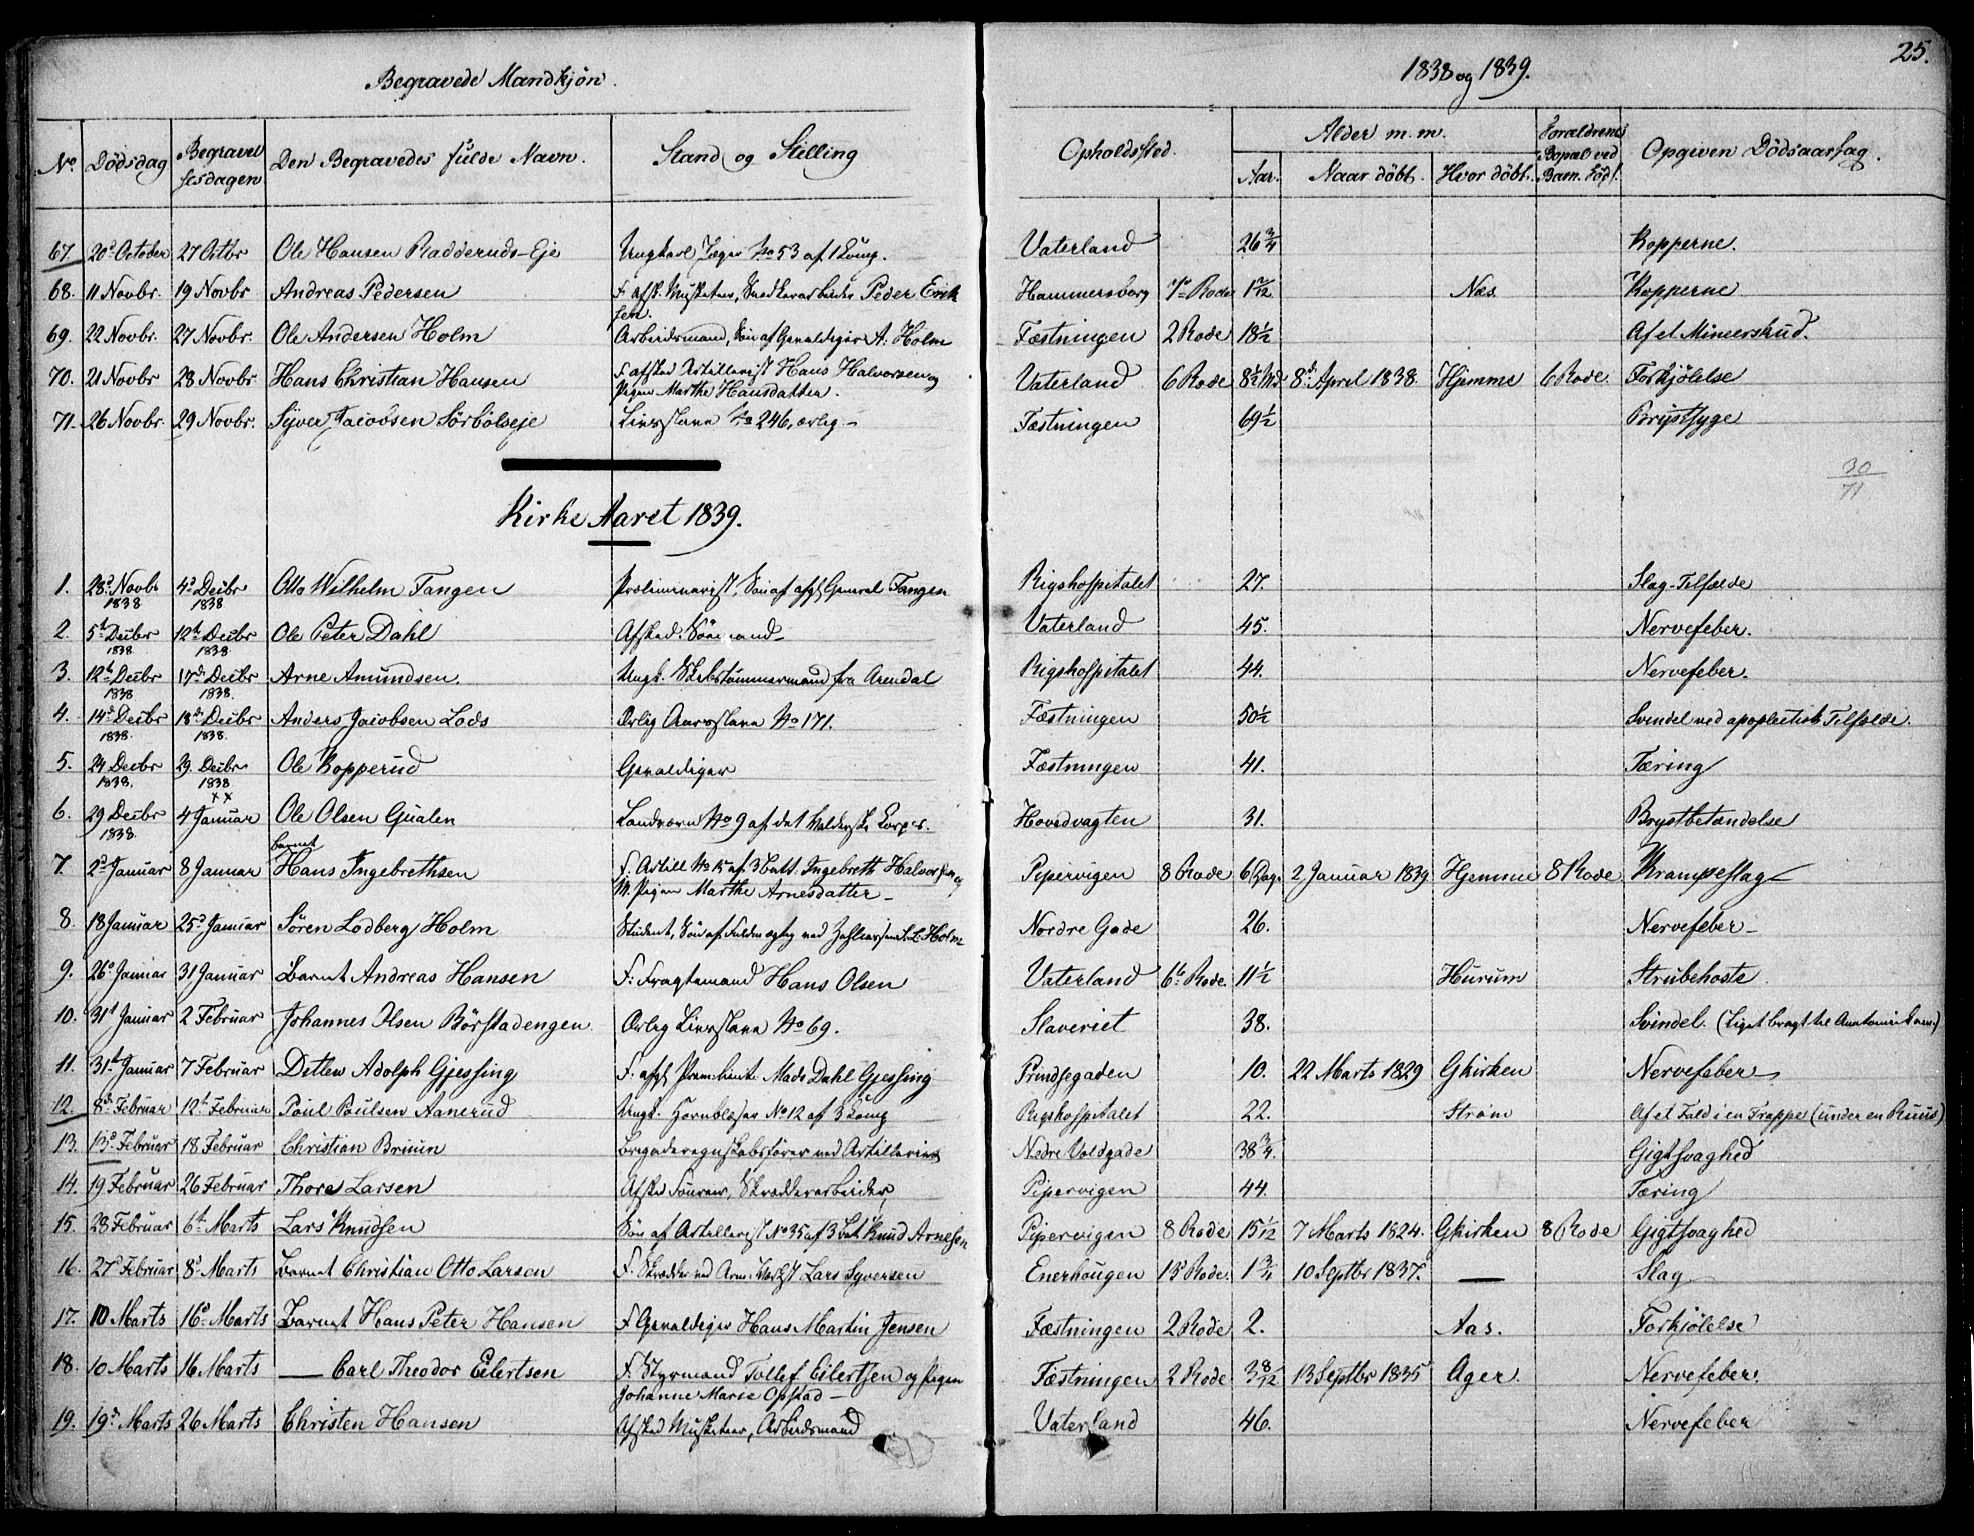 Begravede Mandkjøn.
1838 og 1839.
25.
No. Dødsdag Begravelsesdagen Den Begravedes fulde Navn. Stand og Stilling Opholdssted. Alder m. m. Aar. Naar døbt. Hvor døbt. Forældrenes Bopæl ved Barn. Fød. Opgiven Dødsaarsag.
67. 20d October 27 Octbr Ole Hansen Radderuds-Eje Ungkarl Jæger No 53 af 1 Comp. Vaterland 26 3/4 Kopperne.
68. 11 Novbr. 19 Novbr Andreas Pedersen F. afsk. Musketeer, Snedkerarbeider Peder Erik Hammersborg 7de Rode 1 2/12 Næs Kopperne
sen.
69. 22 Novbr. 27 Novbr. Ole Andersen Holm Arbeidsmand, Søn af Gevaldiger A. Holm Fæstningen 2 Rode 18 1/2 Af et Mineerskud.
70. 21 Novbr 28 Novbr. Hans Christian Hansen F. afsked Artillerist Hans Halvorsen og Vaterland 6 Rode 8 1/2 Md 8d April 1838. Hjemme 6 Rode. Forkjølelse
Pigen Marthe Hansdatter.
71. 26 Novbr. 29 Novbr. Syver Jacobsen Sørbølseje Livsslave No 246, ærlig. Fæstningen 69 1/2 Brystsyge
30
71
Kirke Aaret 1839.
1. 28d Novbr 4d Decbr Otto Wilhelm Tangen Præliminarist, Søn af afgl General Tangen Rigshospitalet 27. Slag-Tilfælde
1838 1838
2. 5t Decbr 12te Decbr Ole Peter Dahl Afsked. Sømand Vaterland 45. Nervefeber.
1838. 1838
3. 12te Decbr 17de Decbr Arne Amundsen. Ungk. Skibstømmermand fra Arendal Rigshospitalet 44. Nervefeber.
1838 1838.
4. 14d Decbr 18de Decbr Anders Jacobsen Lods Ærlig Aarsslave No 171. Fæstningen 50 1/2 Svindel ved apoplectisk Tilfælde.
1838. 1838.
5. 24 Decbr 29. Decbr Ole Kopperud Gevaldiger Fæstningen 41. Tæring
1838. 1838
6. 29 Decbr 4 Januar Ole Olsen Gualen Landværn No 9 af det Valderske Corps. Hovedvagten 31. Brystbetændelse
1838. Barnet
7. 2d Januar 8 Januar Hans Ingebrethsen F. Artill No 15 af 3 Batt. Ingebreth Halvorsen og Pipervigen 8 Rode 6 Dage 2 Januar 1839 Hjemme 8 Rode. Krampeslag
M. Pigen Marthe Arnesdatter
8. 18 Januar 25d Januar Søren Lodberg Holm Student, Søn af Fuldmægtig ved Zahlkassen L. Holm Nordre Gade 26. Nervefeber
9. 26d Januar 31 Januar Barnet Andreas Hansen F: Fragtemand Hans Olsen Vaterland 6te Rode. 11 1/2 Hurum Strubehoste
10. 31t Januar 2 Februar Johannes Olsen Børstadengen Ærlig Livsslave No 69. Slaveriet 38. Svindel. (Liget bragt til Anatomikam:)
11. 31t Januar 7 Februar Detlew Adolph Gjessing F. afgl Premlieut. Mads Dahl Gjessing Prindsegaden 10. 22 Marts 1829 Gkirken Nervefeber
12. 8de Februar 12te Februar Poul Poulsen Aanerud Ungk. Hornblæser No 12 af 3 Comp Rigshospitalet 22. Strøm Af et Fald i en Trappe (under en Ruus)
13. 13d Februar 18 Februar Christian Bruun Brigaderegnskabsfører ved Artilleriet Nedre Voldgade 38 3/4. Gigtsvaghed
14. 19 Februar 26 Februar Thore Larsen Afsked Soureer, Skrædderarbeider, Pipervigen 44. Tæring
15. 28 Februar 6te Marts Lars Knudsen Søn af Artillerist No 35 af 3 Bat Knud Arnesen Pipervigen 8 Rode 15 1/12 7 Marts 1824. Gkirken 8 Rode Gigtsvaghed
16. 27d Februar 8d Marts Barnet Christian Otto Larsen F. Skrædder ved Arm. Værkst. Lars Syversen Enerhougen 13d Rode. 1 3/4 10 Septbr 1837. — Slag
17. 10 Marts 16d Marts Barnet Hans Peter Hansen F Gevaldiger Hans Martin Jensen Fæstningen 2 Rode 2. Aas. Forkjølelse
18. 10 Marts 16 Marts — Carl Theodor Eilertsen F. Styrmand Tollef Eilertsen og Pigen Fæstningen 2 Rode 3 8/12 13 Septbr 1835 Ager Nervefeber.
Johanne Marie Opstad
19. 19d Marts 26 Marts Christen Hansen Afsked Musketeer, Arbeidsmand Vaterland 46. Nervefeber